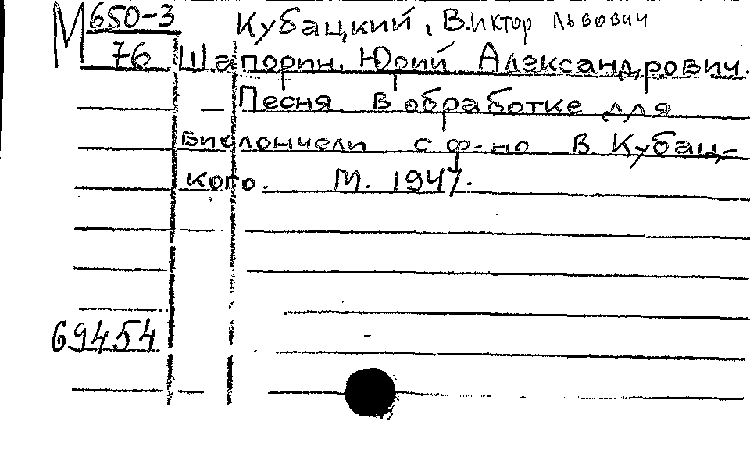 М 650-3 Кубацкий, Виктор Львович
76 Шапорин, Юрий Александрович.
Песня. В обработке для
виолончели с ф-но В. Кубац-
кого. М. 1947.
69454